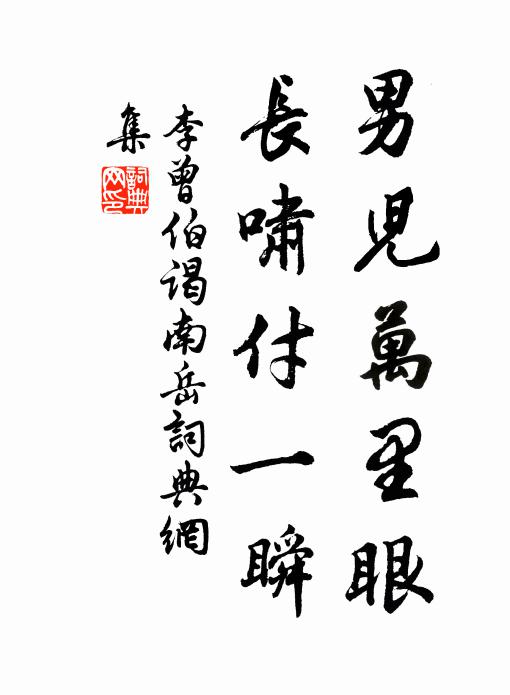 男兒萬里眼
長嘯付一瞬
李曾伯謁南岳詞典網
集
詞典
网印